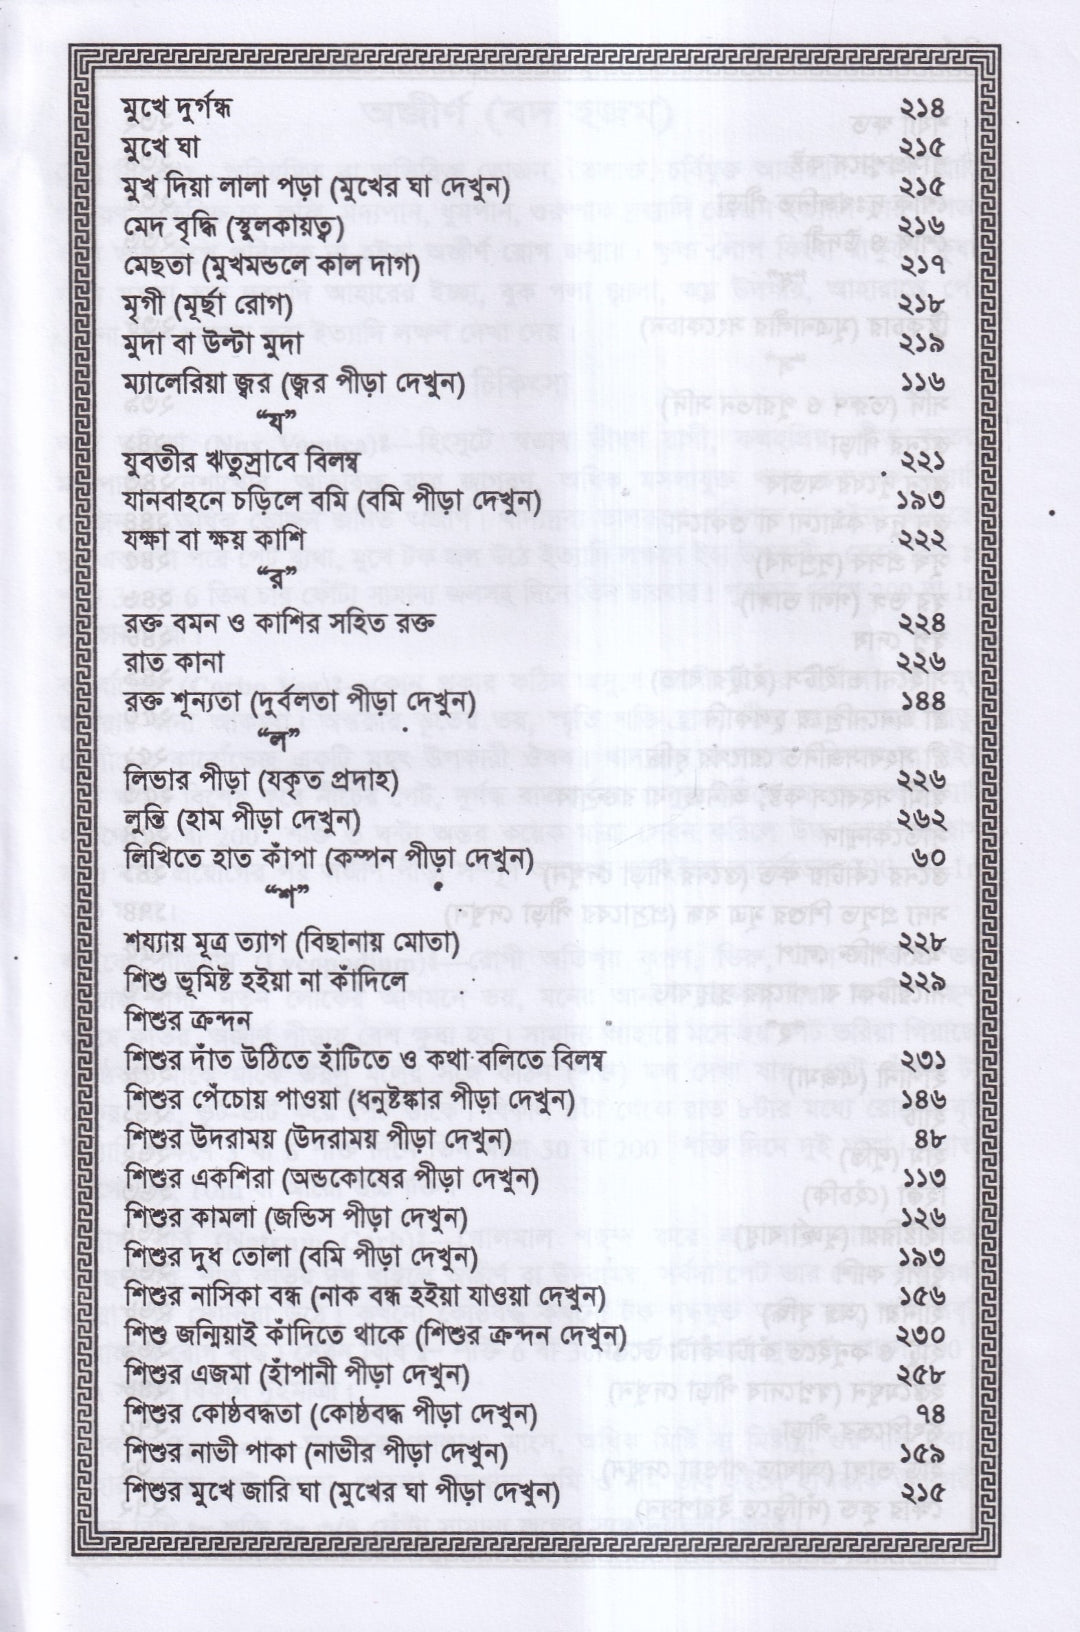 মুখে দুর্গন্ধ ২১৪
মুখে ঘা ২১৫
মুখ দিয়া লালা পড়া (মুখের ঘা দেখুন) ২১৫
মেদ বৃদ্ধি (স্থুলকায়ত্ব) ২১৬
মেছতা (মুখমন্ডলে কাল দাগ) ২১৭
মৃগী (মূর্ছা রোগ) ২১৮
মুদা বা উল্টা মুদা ২১৯
ম্যালেরিয়া জ্বর (জ্বর পীড়া দেখুন) ১১৬
“য”
যুবতীর ঋতুস্রাবে বিলম্ব ২২১
যানবাহনে চড়িলে বমি (বমি পীড়া দেখুন) ১৯৩
যক্ষা বা ক্ষয় কাশি ২২২
“র”
রক্ত বমন ও কাশির সহিত রক্ত ২২৪
রাত কানা ২২৬
রক্ত শূন্যতা (দুর্বলতা পীড়া দেখুন) ১৪৪
“ল”
লিভার পীড়া (যকৃত প্রদাহ) ২২৬
লুন্তি (হাম পীড়া দেখুন) ২৬২
লিখিতে হাত কাঁপা (কম্পন পীড়া দেখুন) ৬০
“শ”
শয্যায় মূত্র ত্যাগ (বিছানায় মোতা) ২২৮
শিশু ভূমিষ্ট হইয়া না কাঁদিলে ২২৯
শিশুর ক্রন্দন
শিশুর দাঁত উঠিতে হাঁটিতে ও কথা বলিতে বিলম্ব ২৩১
শিশুর পেঁচোয় পাওয়া (ধনুষ্টঙ্কার পীড়া দেখুন) ১৪৬
শিশুর উদরাময় (উদরাময় পীড়া দেখুন) ৪৮
শিশুর একশিরা (অন্ডকোষের পীড়া দেখুন) ১১৩
শিশুর কামলা (জন্ডিস পীড়া দেখুন) ১২৬
শিশুর দুধ তোলা (বমি পীড়া দেখুন) ১৯৩
শিশুর নাসিকা বন্ধ (নাক বন্ধ হইয়া যাওয়া দেখুন) ১৫৬
শিশু জন্মিয়াই কাঁদিতে থাকে (শিশুর ক্রন্দন দেখুন) ২৩০
শিশুর এজমা (হাঁপানী পীড়া দেখুন) ২৫৮
শিশুর কোষ্ঠবদ্ধতা (কোষ্ঠবদ্ধ পীড়া দেখুন) ৭৪
শিশুর নাভী পাকা (নাভীর পীড়া দেখুন) ১৫৯
শিশুর মুখে জারি ঘা (মুখের ঘা পীড়া দেখুন) ২১৫